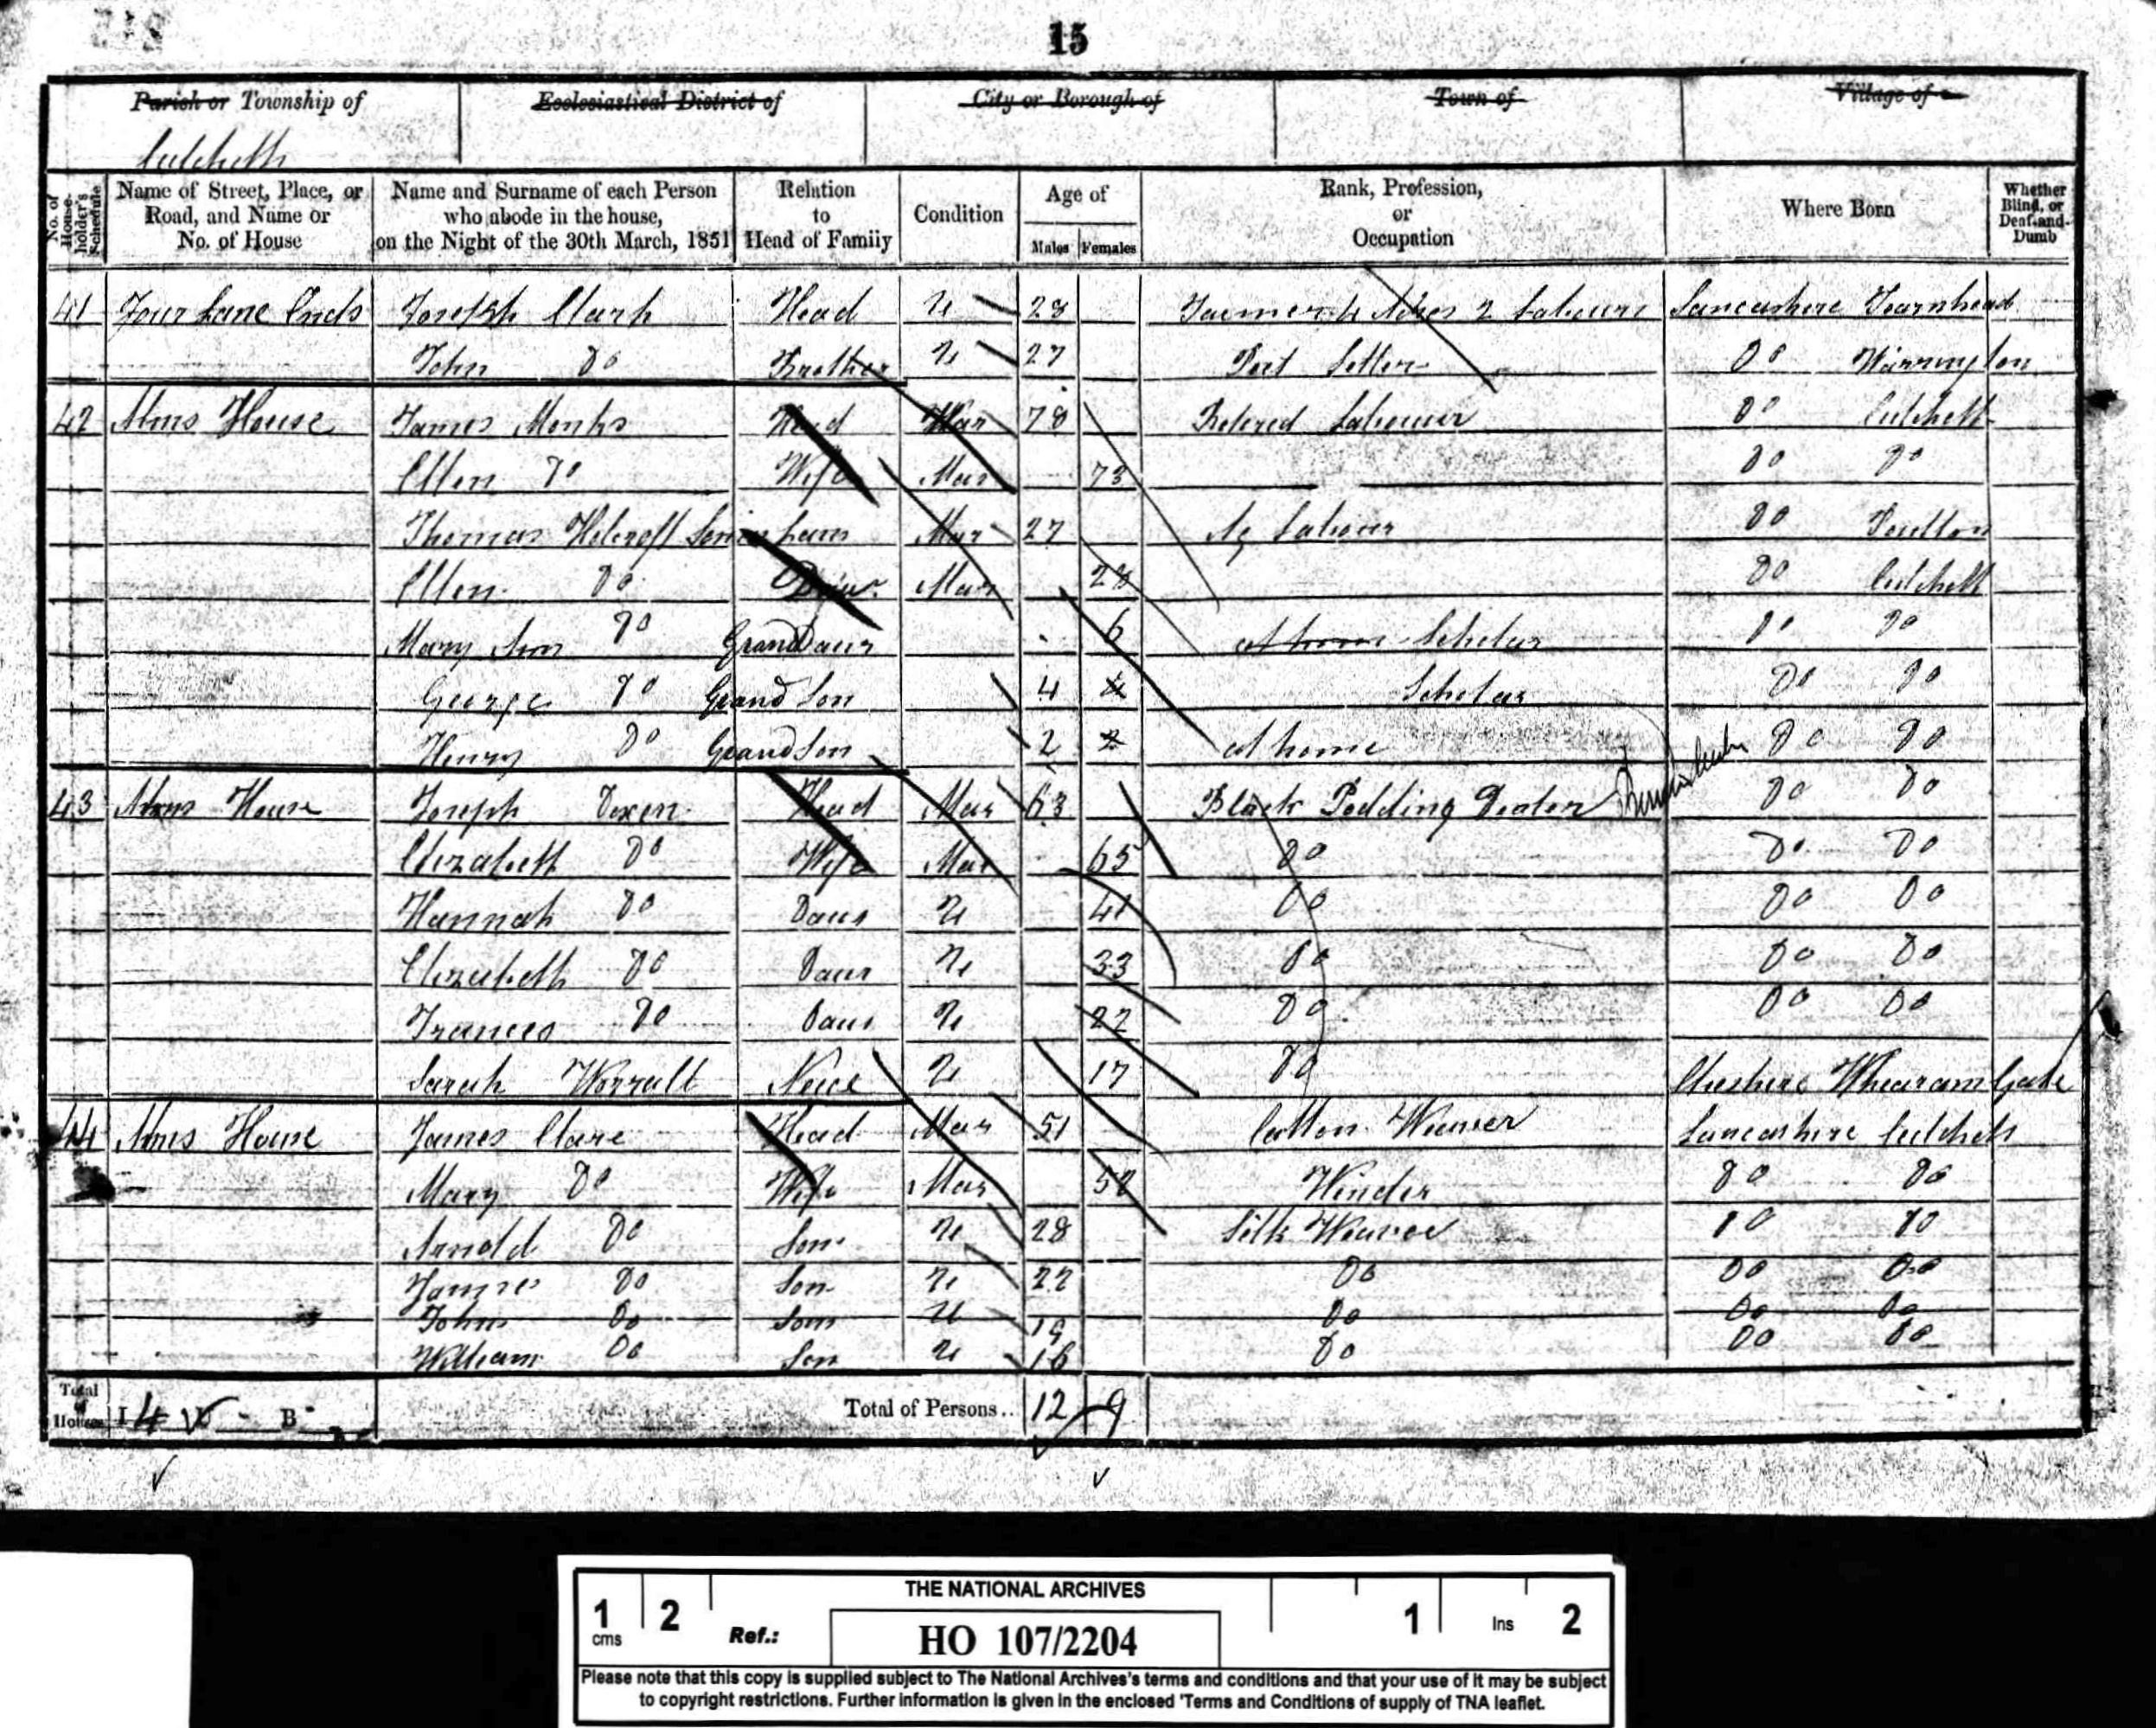 15
Parish or Township of Ecclesiastical District of City or Borough of Town of Village of
Culcheth
No. of House-holder's Schedule Name of Street, Place, or Road, and Name or No. of House Name and Surname of each Person who abode in the house, on the Night of the 30th March, 1851 Relation to Head of Family Condition Age of Males Females Rank, Profession, or Occupation Where Born Whether Blind, or Deaf-and-Dumb
41 Four Lane Ends Joseph Clark Head U 28 Farmer 4 Acres 2 Labours Lancashire Fearnhead
John Do Brother U 27 Do Warrington
42 Alms House James Monks Head Mar 78 Retered Labourer Do Culcheth
Ellen Do Wife Mar 73 Do Do
Thomas Holcroft Son in Law Mar 27 Ag Labour Do
Ellen Do Daur Mar Do Culcheth
Mary Ann Do Grand Daur 6 at home Scholar Do Do
George Do Grand Son 4 4 Scholar Do Do
Henry Do Grand Son 2 2 at home Do Do
43 Alms House Joseph Mar 63 Black Podding Dealer Do Do
Elizabeth Do Wife Mar 65 Do Do Do
Hannah Do Daur U 41 Do Do Do
Elizabeth Do Daur U 33 Do Do Do
Frances Do Daur U 22 Do Do Do
Sarah Worrall Neice U 17 Do Cheshire Gate
44 Alms House James Clare Head Mar 51 Cotton Weaver Lancashire Culcheth
Mary Do Wife Mar 52 Winder Do Do
Arnold Do Son U 28 Silk Weaver Do Do
James Do Son U 22 Do Do Do
John Do Son U 19 Do Do Do
William Do Son U 16 Do Do Do
Total of Houses I 4 U - B - Total of Persons.. 12 9
THE NATIONAL ARCHIVES
1 cms 2 Ref.: HO 107/2204 1 Ins 2
Please note that this copy is supplied subject to The National Archives's terms and conditions and that your use of it may be subject
to copyright restrictions. Further information is given in the enclosed 'Terms and Conditions of supply of TNA leaflet.